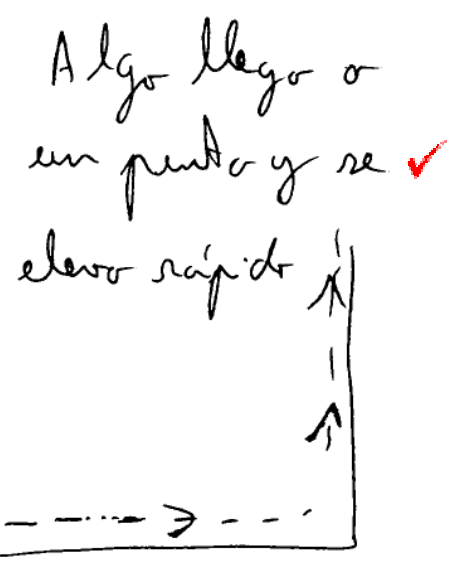 Algo llego a
un punto y se
elevo rápido